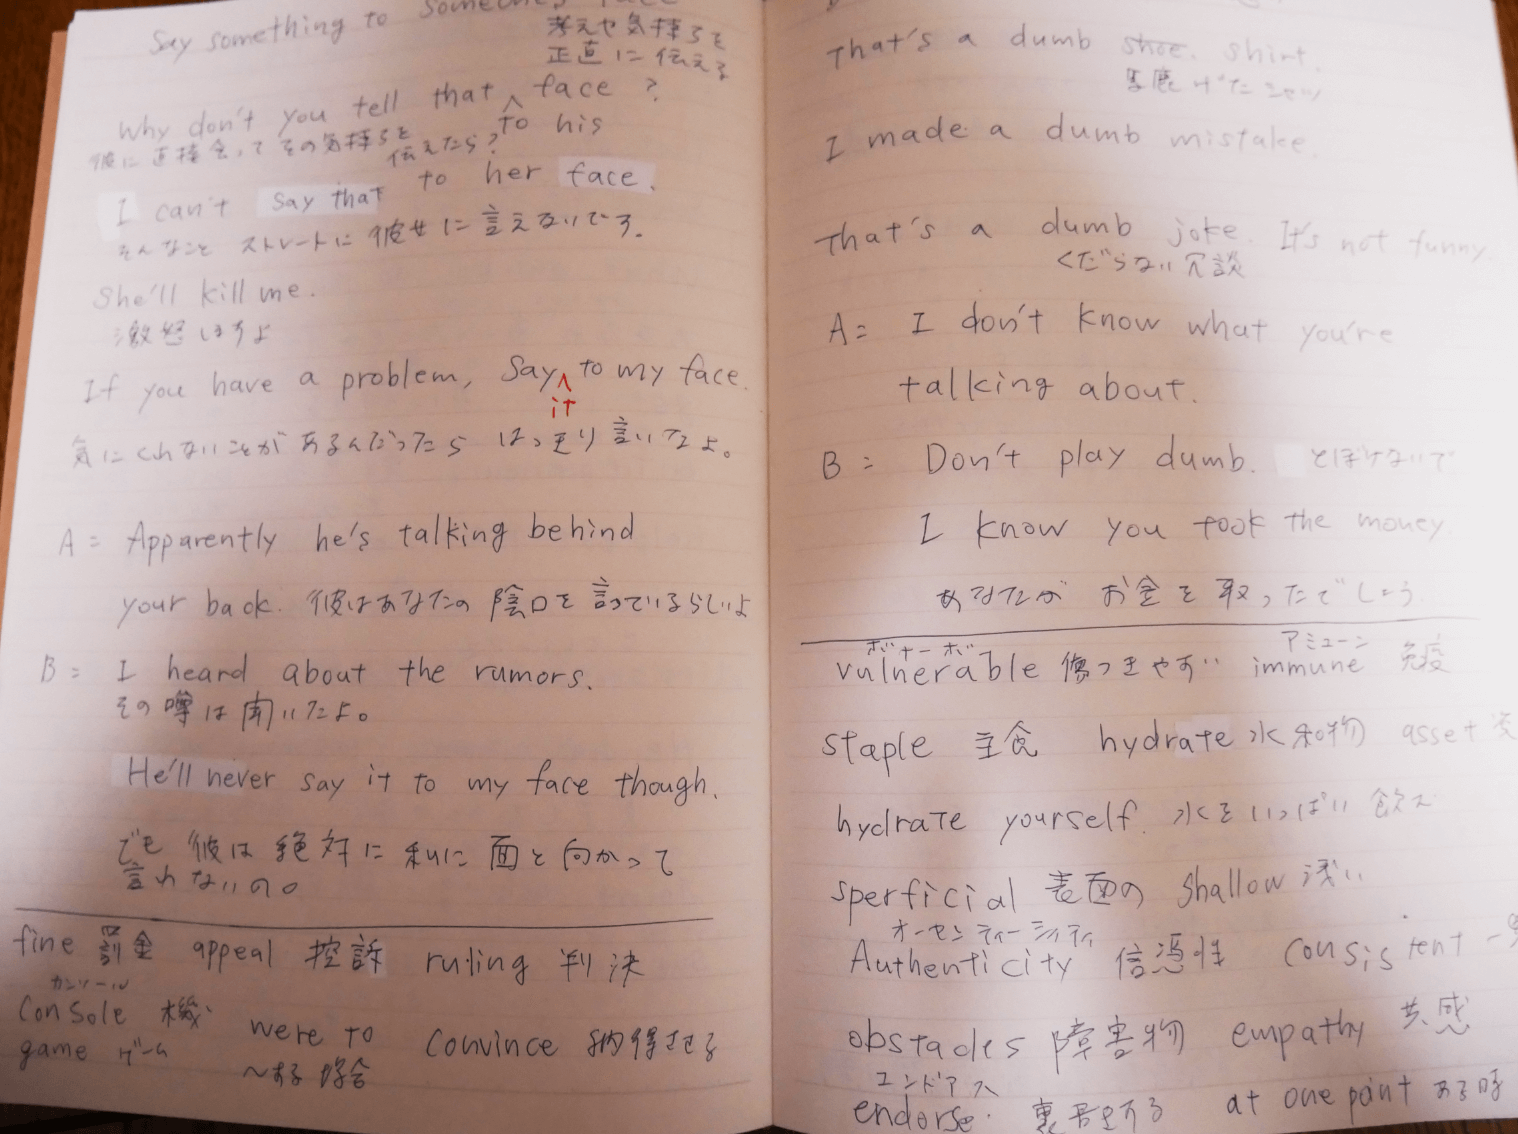 Say something to someone's face
考えや気持ちを
正直に伝える
Why don't you tell that ^ face ?
to his
彼に直接会ってその気持ちを
伝えたら?
I can't say that to her face.
そんなこと ストレートに 彼女に言えないでう.
She'll kill me.
激怒はすよ
If you have a problem, Say ^ to my face.
it
気にくわないことがあるんだったら はっきり言いなよ。
A = Apparently he's talking behind
your back. 彼はあなたの 陰口を言っているらしいよ
B = I heard about the rumors.
その噂は聞いたよ。
He'll never say it to my face though.
でも 彼は絶対に私に面と向かって
言わないの。
fine 罰金 appeal 控訴 ruling 判決
カンソール
console 機 were to convince 納得させる
game ゲーム ~ある場合
That's a dumb shoe. shirt.
馬鹿げたシャツ
I made a dumb mistake.
That's a dumb joke. It's not funny
くだらない冗談
A = I don't know what you're
talking about.
B = Don't play dumb. とぼけないで
I know you took the money.
あなたが お金を取ったでしょう
ボナーボー アミューン
vulnerable 傷つきやすい immune 免疫
staple 主食 hydrate 水和物 asset
hydrate yourself. 水をいっぱい飲んで
sperficial 表面の shallow 浅い
オーセンティーシティ
Authenticity 信憑性 consistent 一
obstacles 障害物 empathy 共感
エンドアス
endorse. 裏書をする at one point ある時